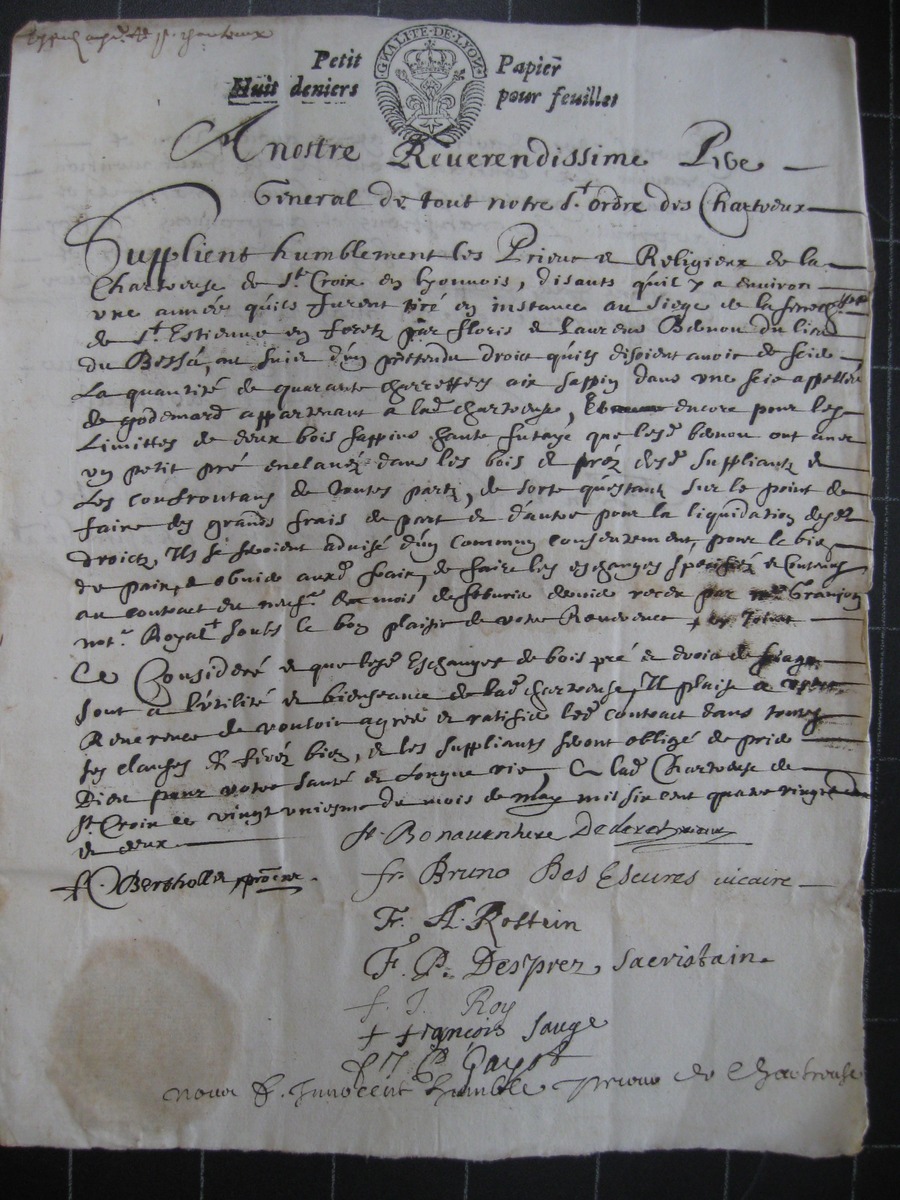 Petit Papier
Huit deniers pour feuilles
GNALITE·DE·LYON
A nostre Reuerendissime Pere
General de tout notre St ordre des Chartreux
Supplient humblement les Prieur & Religieux de la
Chartreuse de Ste Croix en Lyonnois, disants qu'il y a environ
vne année qu'ils furent tiré en instance au siege de la
de St Estienne en forestz par floris & Laurens Benou du lieu
du Bessá, au suict d'un prétendu droict qu'ils disoient auoir de seie
La quantité de quarante charrettées aix sappin dans une seie appellée
de godemard appartenant a lad chartreuse, encore pour les
Limittes de deux bois sappins haute futaye que lesd benou ont auec
vn petit pré enclaué dans les bois & préz desd suppliants &
Les confrontans de toutes partz, de sorte qu'estant sur le point de
faire des grands frais de part & d'autre pour la liquidation desd
droictz, Ils se seroient aduisé d'un commun consentement, pour le bien
de paix, & obuier auxd frais, de faire les eschanges specifiéz & Contenus
au contract du neufe mois de feburier dernier receu par Me Granjon
notre Royal soubs le bon plaisir de votre Reuerence
Ce Consideré & que lesd Eschanges de bois pré & droict de
sont a l'utilité & bienseance de lad chartreuse, Il plaise a votre
Reuerence de vouloir agreer & ratifier led contract dans toutes
ses clauses & feréz bien, & les suppliants seront obligé de prier
Dieu pour votre santé & longue vie, A lad Chartreuse de
Ste Croix ce vingt vniesme du mois de may mil six cent quatre vingt
& deux
fr Bonauenture Dederet prieur
Berthollet
fr Bruno Des Escures uicaire
Fr. A. Rostein
F. P. Desprez sacristain
f. J. Roy
f françois sauge
f J P Gayot
nous f. Innocent humble prieur de Chartreuse